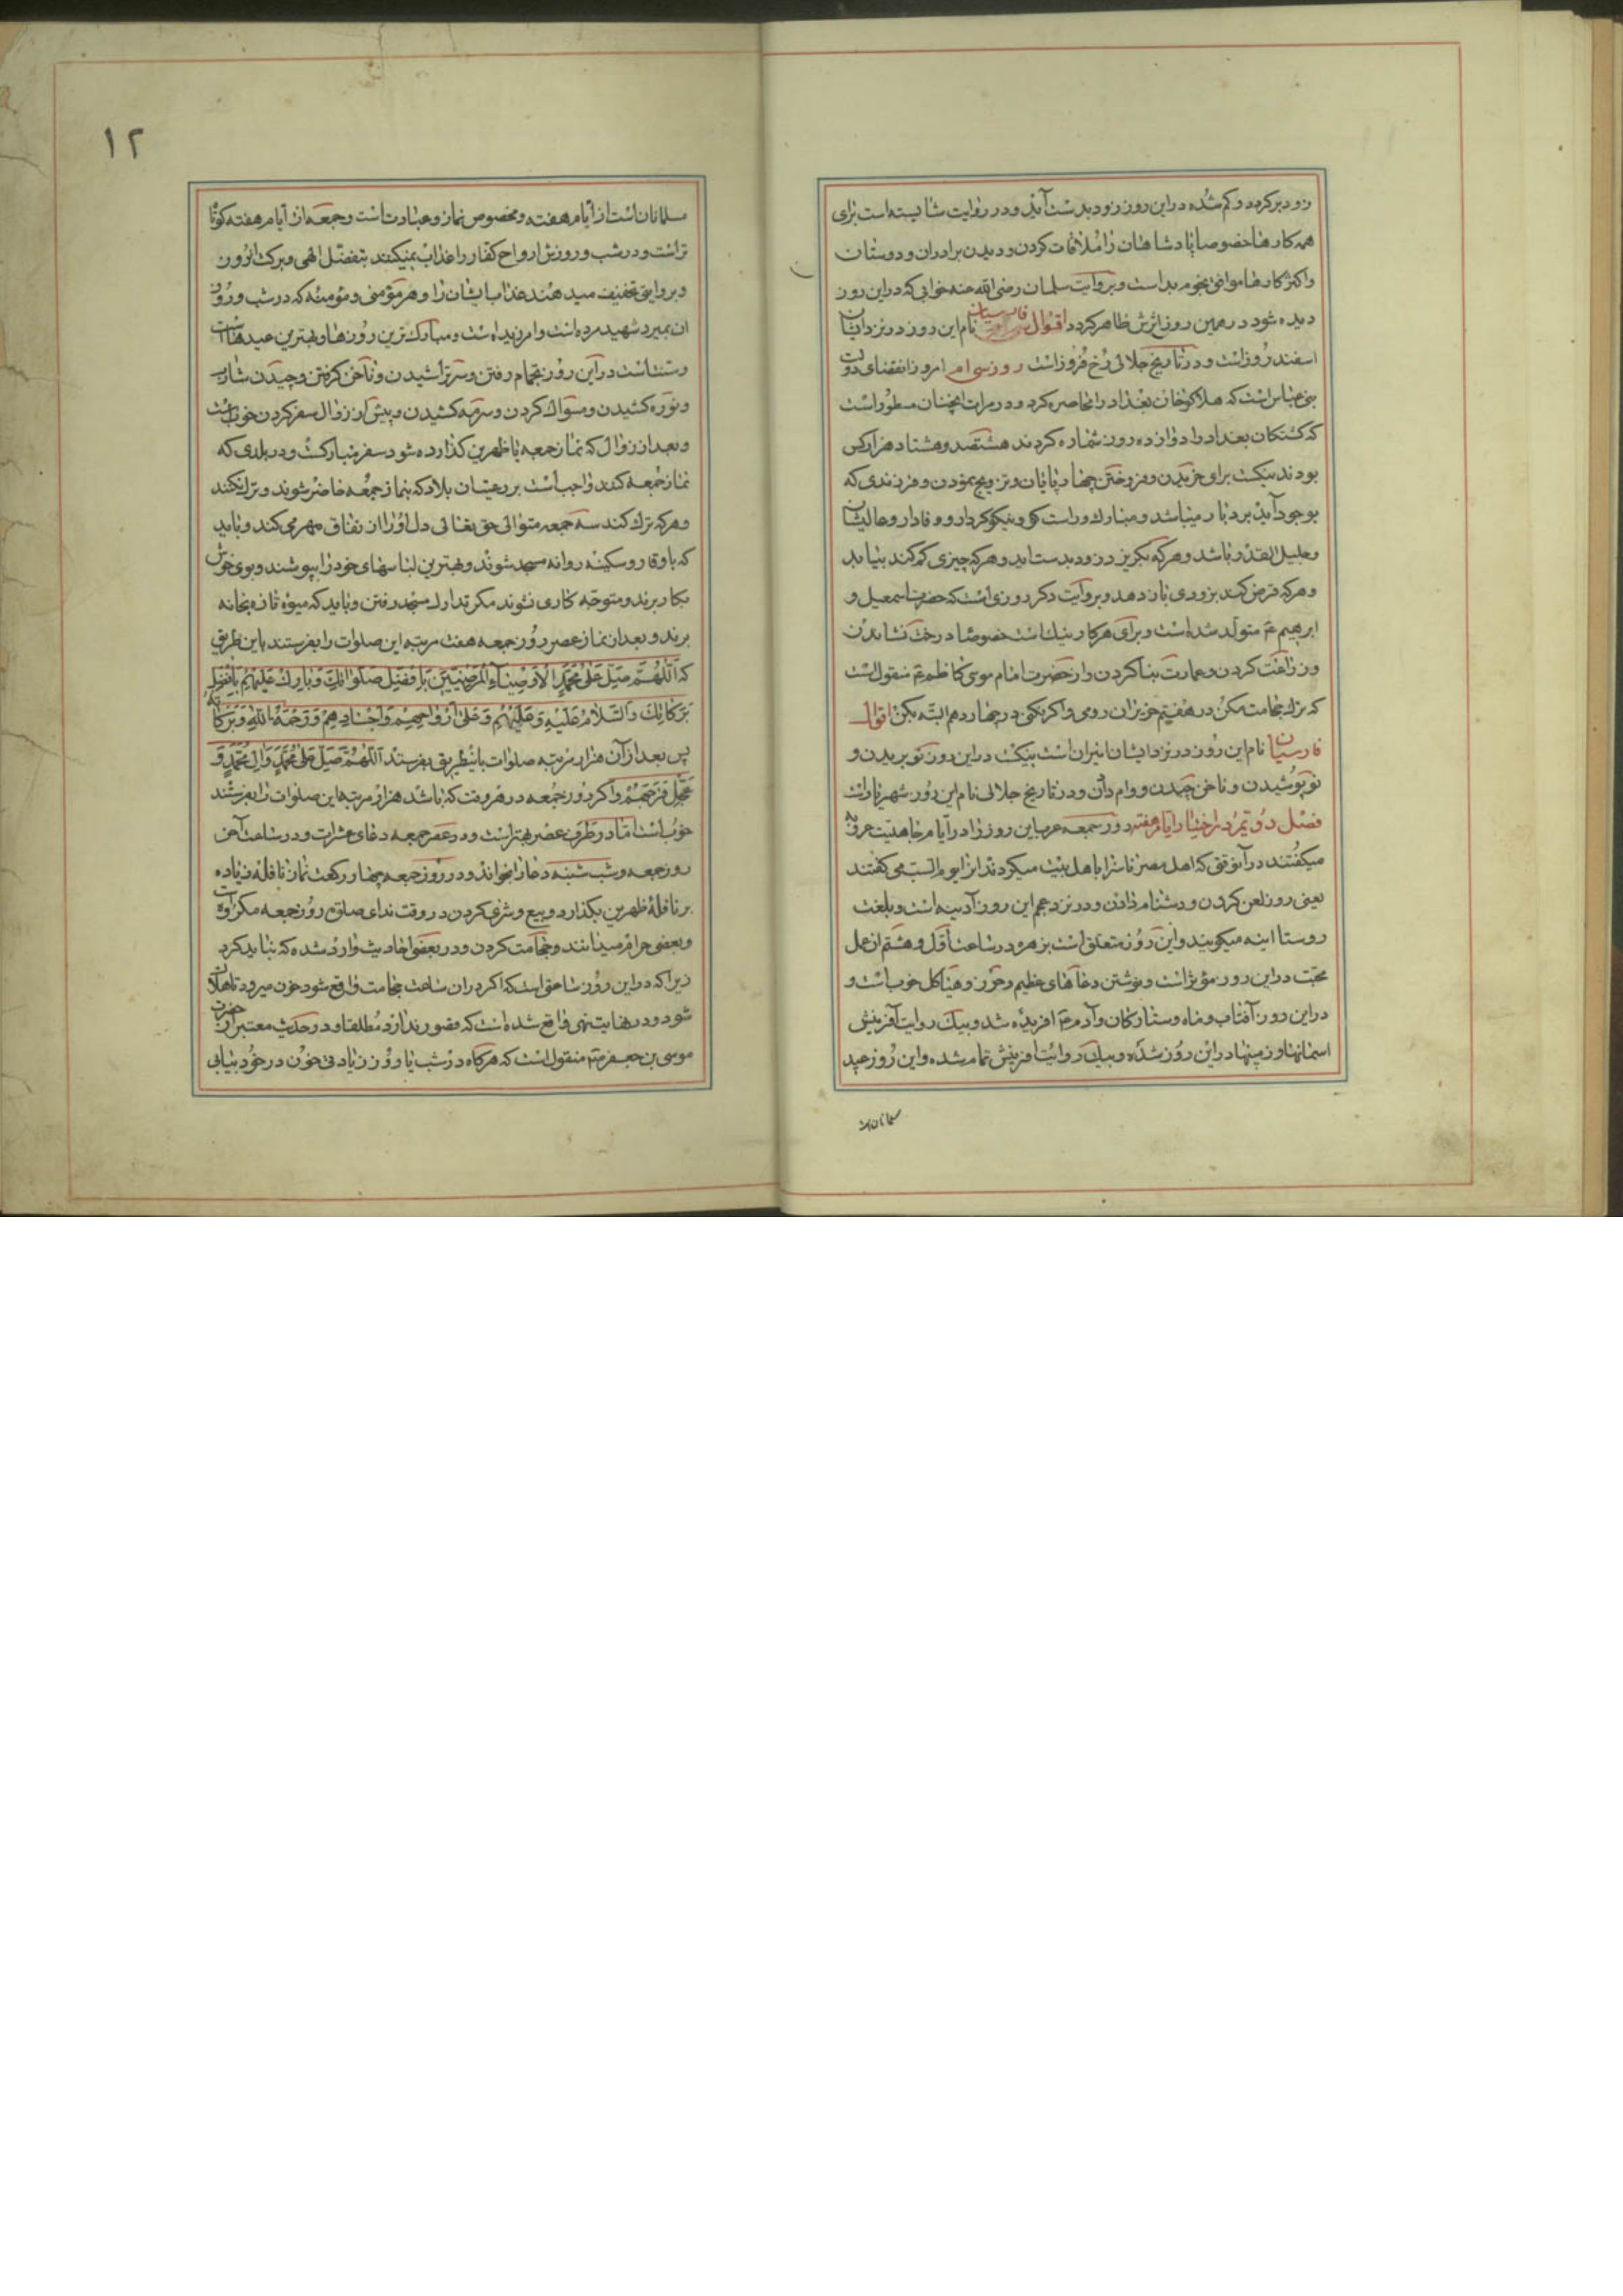 زود برکردد و کم شده در این روز زود بدست آید و در روایت شایسته است برای
همه کارها خصوصا پادشاهان را ملاقات کردن و دیدن برادران و دوستان
و اکثر کارها موافق نجوم بد است و بروایت سلمان رضی الله عنه خوابی که در این روز
دیده شود در همین روز اثرش ظاهر کردد اقوال فارسیان نام این روز در نزد ایشان
اسفند روز است و در تاریخ جلالی رخ فروز است روز سی ام امروز انقضای دولت
بنی عباس است که هلاکو خان بغداد را محاصره کرد و در مرات الجنان مسطور است
که کشتکان بغداد را دوازده روز شماره کردند هشتصد و هشتاد هزار کس
بودند نیکست برای خریدن و فروختن چهارپایان و تزویج نمودن و فرزندی که
بوجود آید بردبار میباشد و مبارک و راست کو و نیکو کردار و وفادار و عالیشان
و جلیل القدر باشد و هر که بکریزد زود بدست اید و هر که چیزی کم کند بیابد
و هر که قرض کند بزودی باز دهد و بروایت دکر روزی است که حضرت اسمعیل و
ابرهیم ع متولد شده است و برای هر کار نیک است خصوصا درخت نشاندن
و زراعت کردن و عمارت بنا کردن و از حضرت امام موسی کاظم ع منقول است
که ترک حجامت مکن در هفتم حزیران رومی و اکر نکنی در چهاردهم البته بکن اقوال
فارسیان نام این روز در نزد ایشان انیران است نیکست در این روز نو بریدن و
نو پوشیدن و ناخن چیدن و وام دادن و در تاریخ جلالی نام این روز شهریار است
فصل دویم در اختیار ایام هفته روز جمعه عرب این روز را در ایام جاهلیت عروبه
میکفتند در آنوقتی که اهل مصر ناسزا باهل بیت میکردند انرا یوم السب می کفتند
یعنی روز لعن کردن و دشنام دادن و در نزد عجم این روز آدینه است و بلغت
روستا اینه میکویند و این روز متعلق است بزهره در ساعت اول و هشتم ان عمل
محبت در این روز مؤثر است و نوشتن دعاهای عظیم و حرز و هیاکل خوب است و
در این روز آفتاب و ماه و ستارکان و آدم ع افریده شد و بیک روایت آفرینش
اسمانها و زمینها در این روز شده و بیک روایت افرینش تمام شده و این روز عید
مسلمانان است
۱۲
مسلمانان است از ایام هفته و مخصوص نماز و عبادت است و جمعه از ایام هفته کوتا
تر است و در شب و روزش ارواح کفار را عذاب نمیکنند بتفضل الهی و برکت انروز
و بروایتی تخفیف میدهند عذاب ایشان را و هر مؤمنی و مؤمنه که در شب و روز
ان بمیرد شهید مرده است و امرزیده است و مبارک ترین روزها و بهترین عیدهاست
و سنت است در این روز بحمام رفتن و سر تراشیدن و ناخن کرفتن و چیدن شارب
و نوره کشیدن و مسواک کردن و سرمه کشیدن و پیش از زوال سفر کردن خوب نیست
و بعد از زوال که نماز جمعه یا ظهرین کذارده شود سفر مبارکست و در بلدی که
نماز جمعه کنند واجب است بر رعیتان بلاد که بنماز جمعه حاضر شوند و ترک نکنند
و هر که ترک کند سه جمعه متوالی حق تعالی دل او را از نفاق مهر می کند و باید
که با وقار و سکینه روانه مسجد شوند و بهترین لباسهای خود را بپوشند و بوی خوش
بکار برند و متوجه کاری نشوند مکر تدارک مسجد رفتن و باید که میوه تازه بخانه
برند و بعد از نماز عصر روز جمعه هفت مرتبه این صلوات را بفرستند باین طریق
که اللهم صل علی محمد الاوصیاء المرضیین بافضل صلواتک و بارک علیهم بافضل
برکاتک والسلام علیه و علیهم و علی ارواحهم و اجسادهم و رحمة الله و برکاته
پس بعد از آن هزار مرتبه صلوات باینطریق بفرستند اللهم صل علی محمد و ال محمد و
عجل فرجهم و اکر روز جمعه در هر وقت که باشد هزار مرتبه این صلوات را بفرستند
خوب است اما در طرف عصر بهتر است و در عصر جمعه دعای عشرات و در ساعت آخر
روز جمعه و شب شنبه دعا را بخواند و در روز جمعه چهار رکعت نماز نافله زیاده
بر نافلهٔ ظهرین بکذارد و بیع و شری کردن در وقت ندای صلوة روز جمعه مکروه است
و بعضی حرام میدانند و حجامت کردن و در بعضی احادیث وارد شده که نباید کرد
زیرا که در این روز ساعتی است که اکر در ان ساعت حجامت واقع شود خون میرود تا هلاک
شود و در نهایت نهی واقع شده است که قصور ندارد مطلقا و در حدیث معتبر از حضرت
موسی بن جعفر ع منقول است که هر کاه در شب یا روز زیادتی خون در خود بیابی